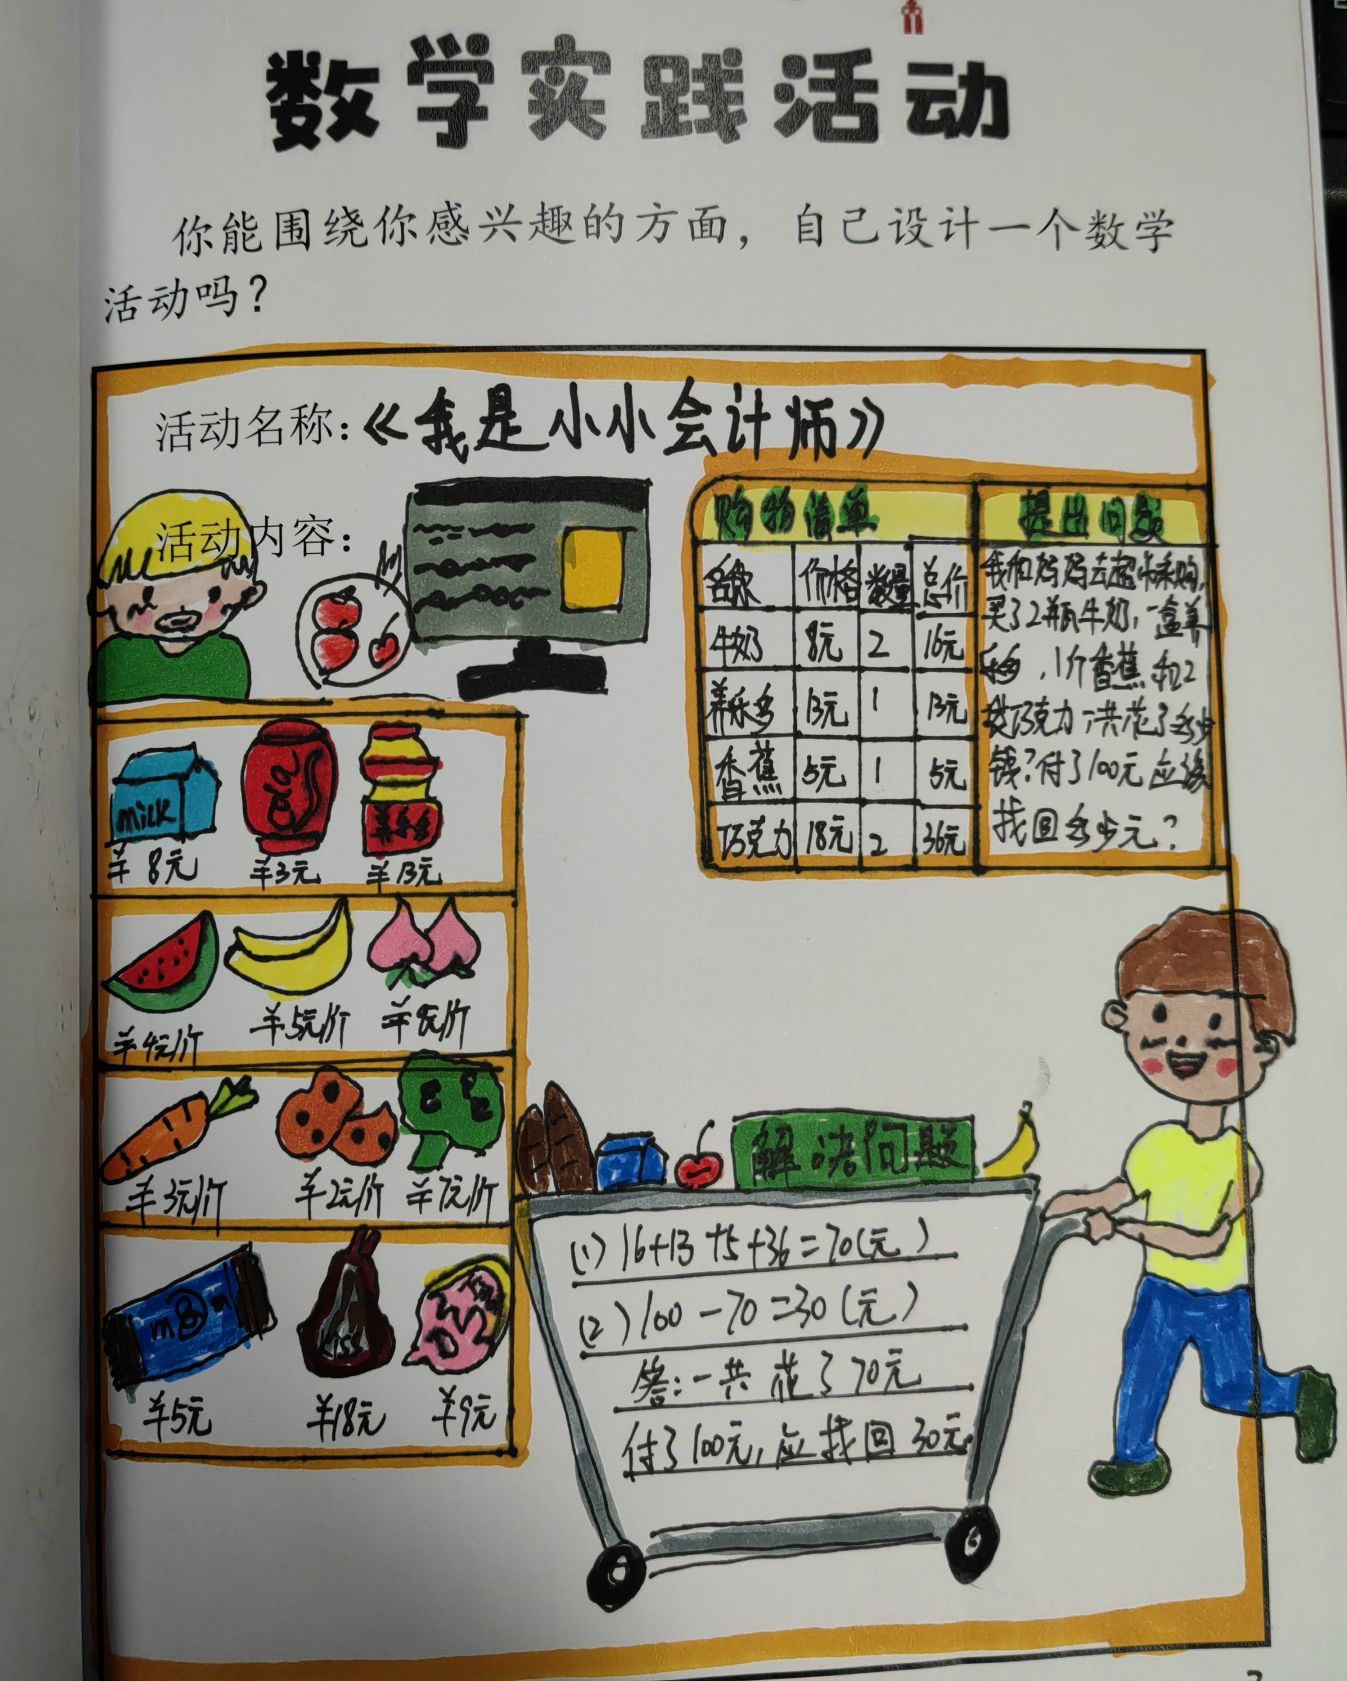 数学实践活动
你能围绕你感兴趣的方面，自己设计一个数学
活动吗？
活动名称：《我是小小会计师》
活动内容：
购物清单
名称 价格 数量 总价
牛奶 8元 2 16元
养乐多 13元 1 13元
香蕉 5元 1 5元
巧克力 18元 2 36元
提出问题
我和妈妈去超市采购，
买了2瓶牛奶，一盒养
乐多，1斤香蕉和2
块巧克力，一共花了多少
钱？付了100元应该
找回多少元？
milk
cola
养乐多
￥8元 ￥3元 ￥13元
￥4元/斤 ￥5元/斤 ￥8元/斤
￥3元/斤 ￥2元/斤 ￥7元/斤
kiss
￥5元 ￥18元 ￥9元
解决问题
(1) 16+13+5+36=70(元)
(2) 100-70=30(元)
答：一共花了70元
付了100元，应找回30元。